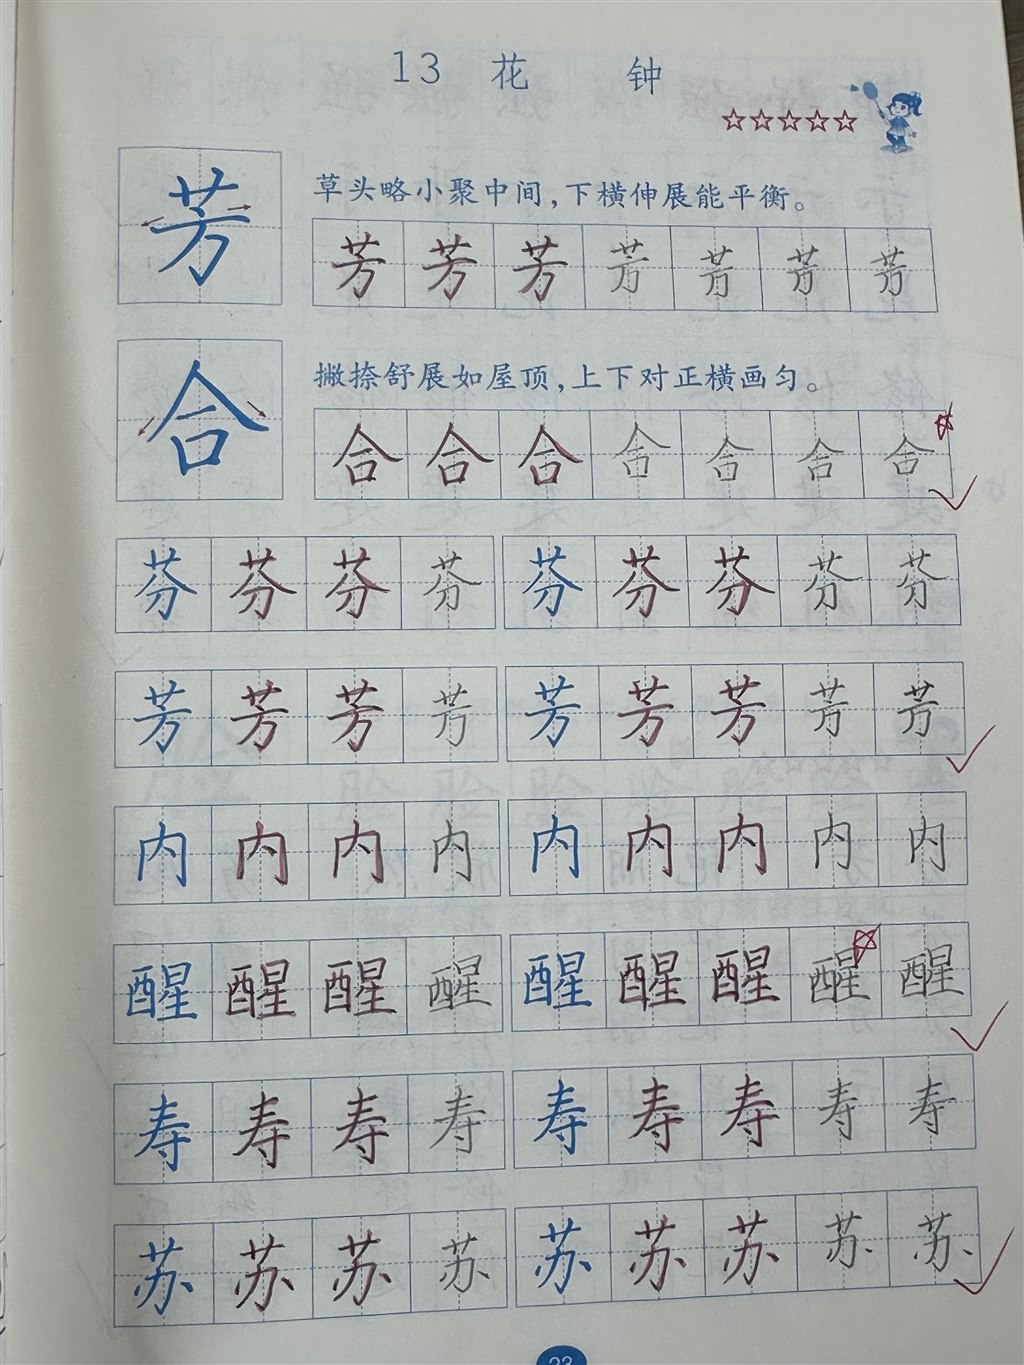 13 花 钟
芳 草头略小聚中间,下横伸展能平衡。
芳 芳 芳 芳 芳 芳 芳
合 撇捺舒展如屋顶,上下对正横画匀。
合 合 合 合 合 合 合
芬 芬 芬 芬 芬 芬 芬 芬 芬
芳 芳 芳 芳 芳 芳 芳 芳 芳
内 内 内 内 内 内 内 内 内
醒 醒 醒 醒 醒 醒 醒 醒 醒
寿 寿 寿 寿 寿 寿 寿 寿 寿
苏 苏 苏 苏 苏 苏 苏 苏 苏
23